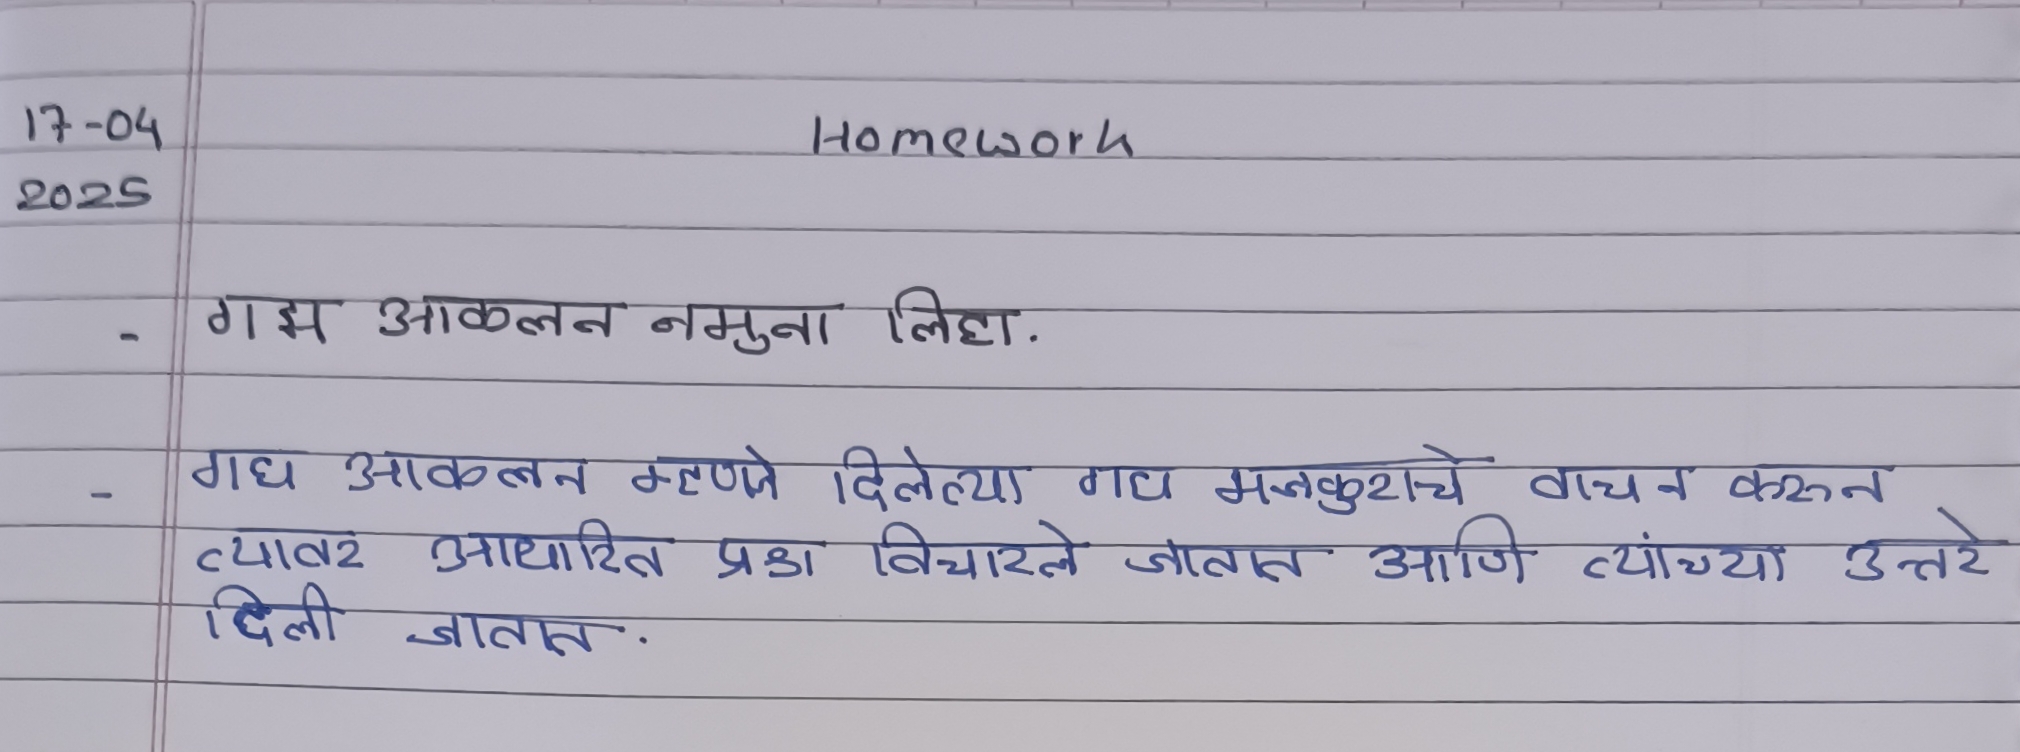 17-04
Homework
2025
- गद्य आकलन नमुना लिहा.
- गद्य आकलन म्हणजे दिलेल्या गद्य मजकुराचे वाचन करून
त्यावर आधारित प्रश्न विचारले जातात आणि त्यांच्या उत्तरे
दिली जातात.